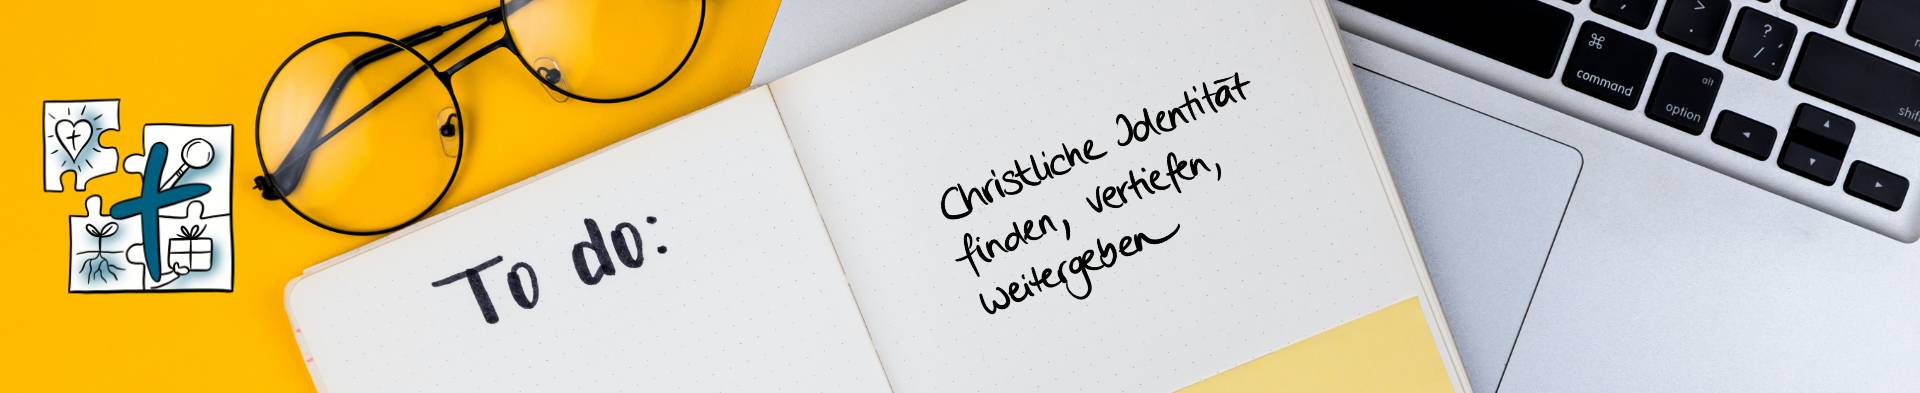 To do:
Christliche Identität
finden, vertiefen,
weitergeben
command
alt
option
shift